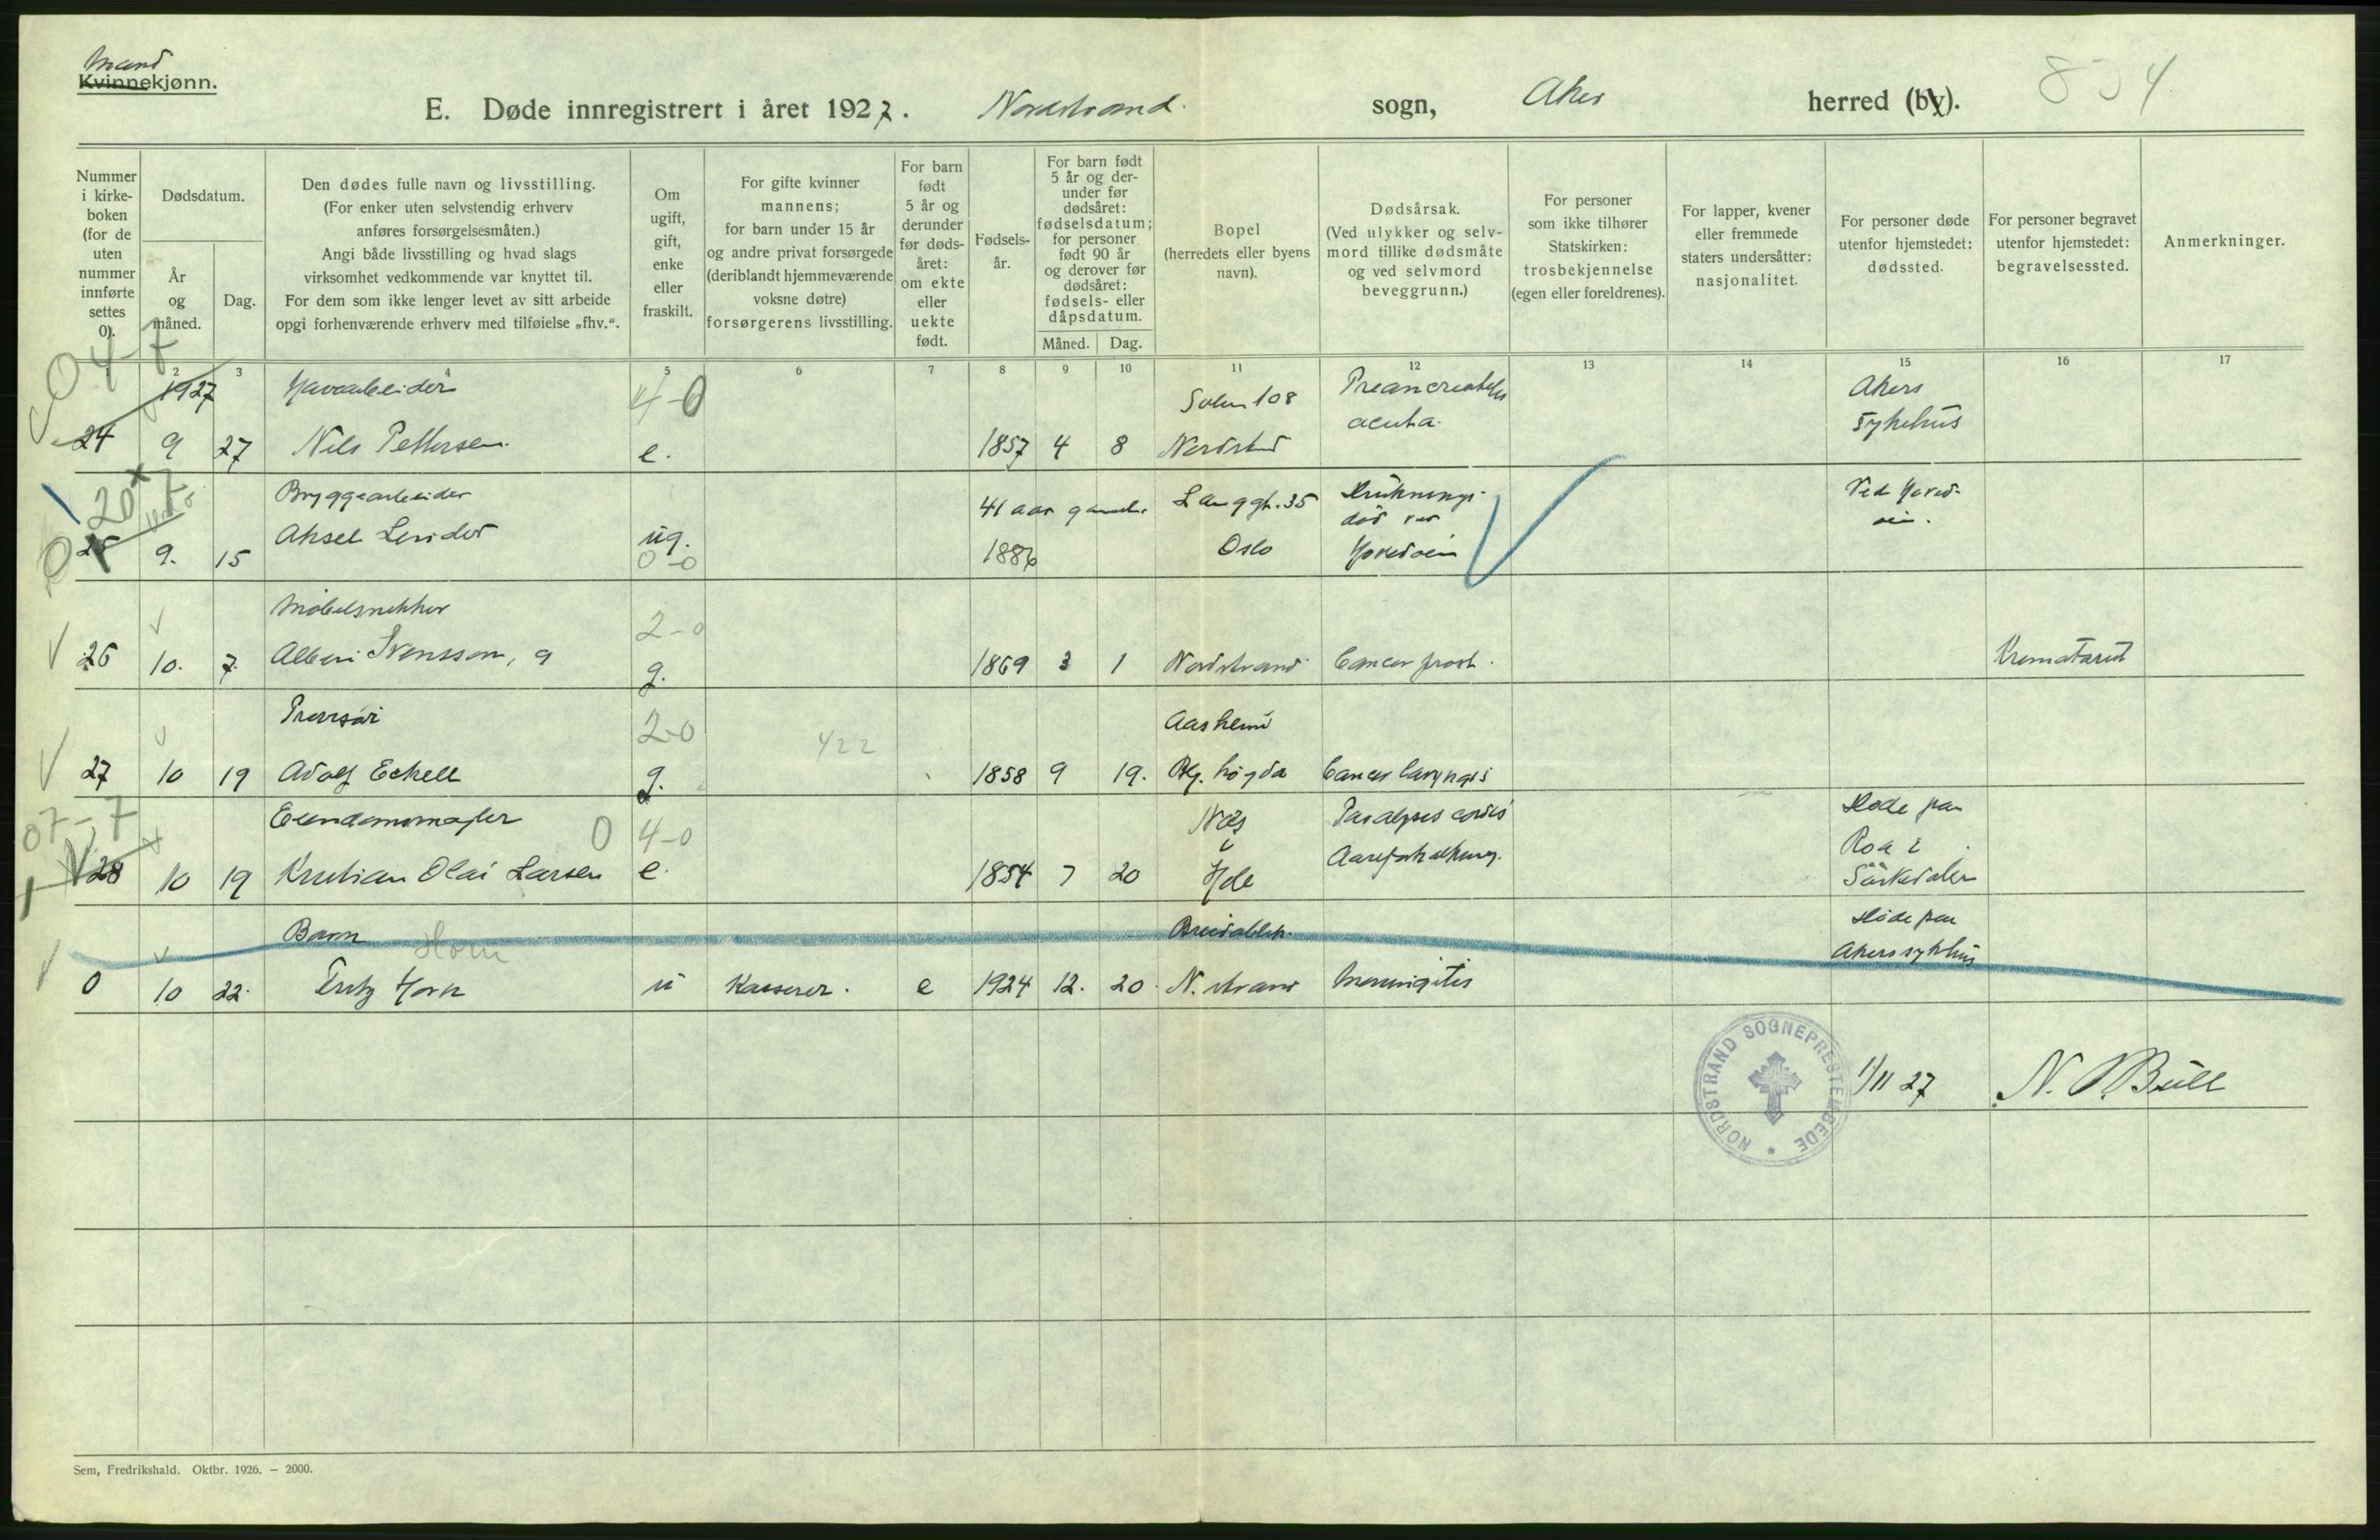 Mand
Kvinnekjønn.
E. Døde innregistrert i året 1927. Nordstrand. sogn, Aker herred (by).
834
Nummer i kirkeboken (for de uten nummer innførte settes 0).
Dødsdatum.
År og måned.
Dag.
Den dødes fulle navn og livsstilling.
(For enker uten selvstendig erhverv
anføres forsørgelsesmåten.)
Angi både livsstilling og hvad slags
virksomhet vedkommende var knyttet til.
For dem som ikke lenger levet av sitt arbeide
opgi forhenværende erhverv med tilføielse „fhv.“.
Om
ugift,
gift,
enke
eller
fraskilt.
For gifte kvinner
mannens;
for barn under 15 år
og andre privat forsørgede
(deriblandt hjemmeværende
voksne døtre)
forsørgerens livsstilling.
For barn
født
5 år og
derunder
før døds-
året:
om ekte
eller
uekte
født.
Fødsels-
år.
For barn født
5 år og der-
under før
dødsåret:
fødselsdatum;
for personer
født 90 år
og derover før
dødsåret:
fødsels- eller
dåpsdatum.
Måned.
Dag.
Bopel
(herredets eller byens
navn).
Dødsårsak.
(Ved ulykker og selv-
mord tillike dødsmåte
og ved selvmord
beveggrunn.)
For personer
som ikke tilhører
Statskirken:
trosbekjennelse
(egen eller foreldrenes).
For lapper, kvener
eller fremmede
staters undersåtter:
nasjonalitet.
For personer døde
utenfor hjemstedet:
dødssted.
For personer begravet
utenfor hjemstedet:
begravelsessted.
Anmerkninger.
1 2 3 4 5 6 7 8 9 10 11 12 13 14 15 16 17
04-7
1927 Havearbeider 4-0 Solv 108 Preancreatitis Akers
acuta. Sykehus
24 9 27 Nils Pettersen. e. 1857 4 8 Nordstrd
20 7
Bryggearbeider 41 aar gammel. Langgt. 35 Druknings- Ved Hoved-
død ved øen.
25 9. 15 Aksel Linder ug. 1886 Oslo Hovedøen
0-0
Møbelsnekker 2-0
26 10. 7. Albin Svensson, g. 1869 3 1 Nordstrand Cancer prost. Krematoriet
Provisor 2-0 422 Aasheim
27 10 19 Adolf Eckell g. 1858 9 19. Bg. høgda Cancer laryngis
07-7
Eiendomsmægler 0 4-0 Næs Paralysis cordis Døde paa
i Aareforkalkning. Roa i
28 10 19 Kristian Olai Larsen e. 1854 7 20 Hole Sørkedalen
Barn Horn Breidablik. Døde paa
Akers sykhus
0 10 22. Fritz Horn u Kasserer. e 1924 12. 20. N.strand Meningitis
NORDSTRAND SOGNEPRESTEMBEDE
1/11 27 N. Bull
Sem, Fredrikshald. Oktbr. 1926. — 2000.